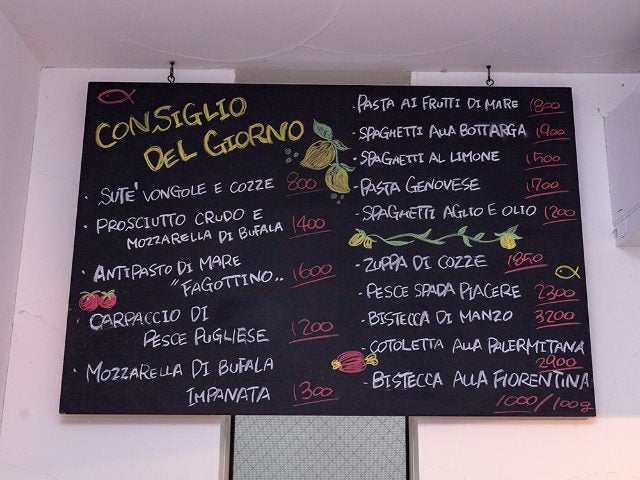 CONSIGLIO
DEL GIORNO
· SUTE' VONGOLE E COZZE 800
· PROSCIUTTO CRUDO E
MOZZARELLA DI BUFALA 1400
· ANTIPASTO DI MARE
"FAGOTTINO.. 1600
· CARPACCIO DI
PESCE PUGLIESE 1200
· MOZZARELLA DI BUFALA
IMPANATA 1300
· PASTA AI FRUTTI DI MARE 1800
· SPAGHETTI ALLA BOTTARGA 1900
· SPAGHETTI AL LIMONE 1500
· PASTA GENOVESE 1700
· SPAGHETTI AGLIO E OLIO 1200
· ZUPPA DI COZZE 1850
· PESCE SPADA PIACERE 2300
· BISTECCA DI MANZO 3200
· COTOLETTA ALLA PALERMITANA
2900
· BISTECCA ALLA FIORENTINA
1000/100g